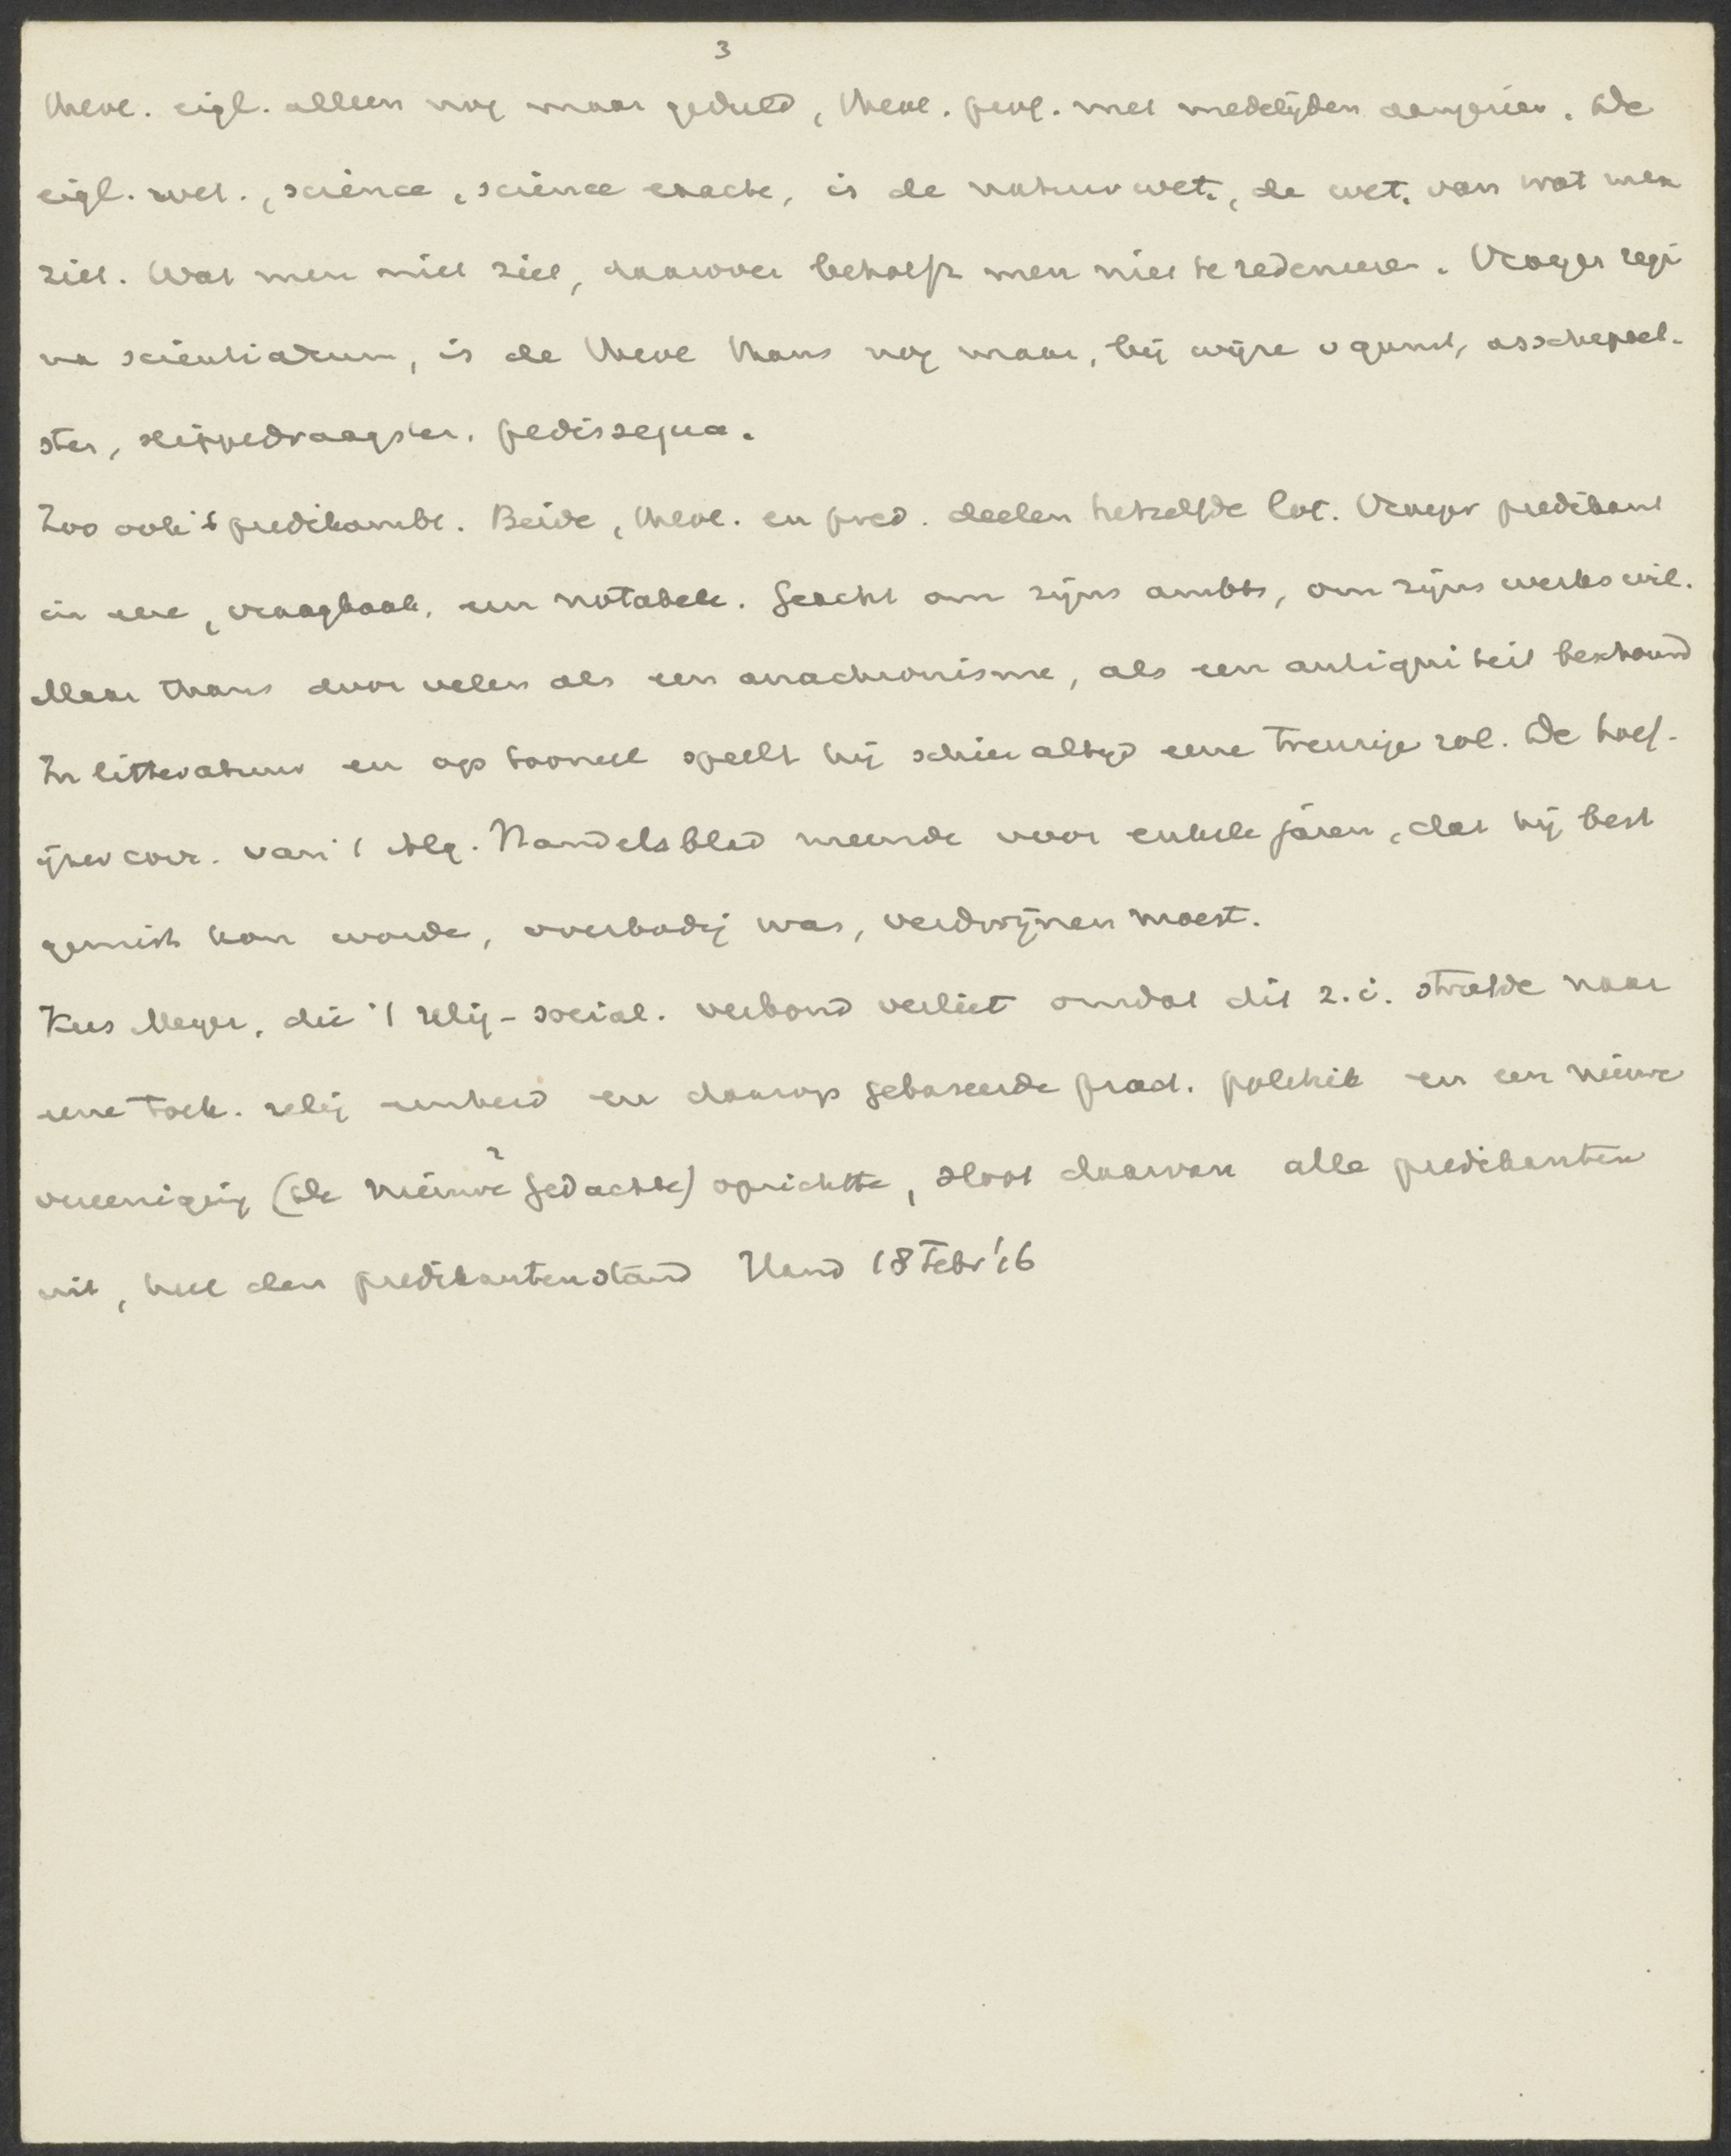 3
theol. eigl. alleen nog maar geduld, theol. prof. met medelijden aangezien. De
eigl. wet., science, science exacte, is de natuurwet., de wet. van wat men
ziet. Wat men niet ziet, daarover behoeft men niet te redeneeren. Vroeger regi
na scientiarum, is de theol thans nog maar, bij wijze v gunst, asschepoet-
ster, sleippedraagster, pedissequa.
Zoo ook 't predikambt. Beide, theol. en pred. deelen hetzelfde lot. Vroeger predikant
in eere, vraagbaak, een notabele. Geacht om zijns ambts, om zijns werks wil.
Maar thans door velen als een anachronisme, als een antiquiteit beschouwd
In litteratuur en op tooneel speelt hij schier altijd eene treurige rol. De
corr. van 't Alg. Handelsblad meende voor enkele jaren, dat hij best
gemist kon worden, overbodig was, verdwijnen moest.
Kees Meyer, die 't relig-social. verbond verliet omdat dit z.i. streefde naar
eene toek. relig eenheid en daarop gebaseerde pract. politiek en een nieuwe
vereeniging (de nieuwe? gedachte) oprichtte, sloot daarvan alle predikanten
uit, heel den predikantenstand Hand 18 Febr '16